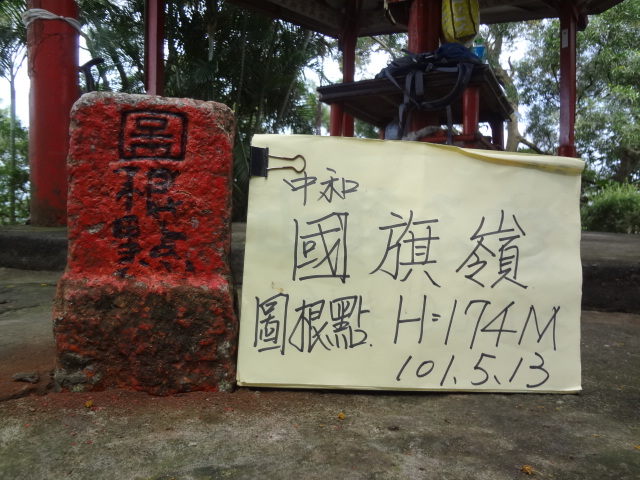 圖
根
點
中和
國旗嶺
圖根點. H=174M
101.5.13